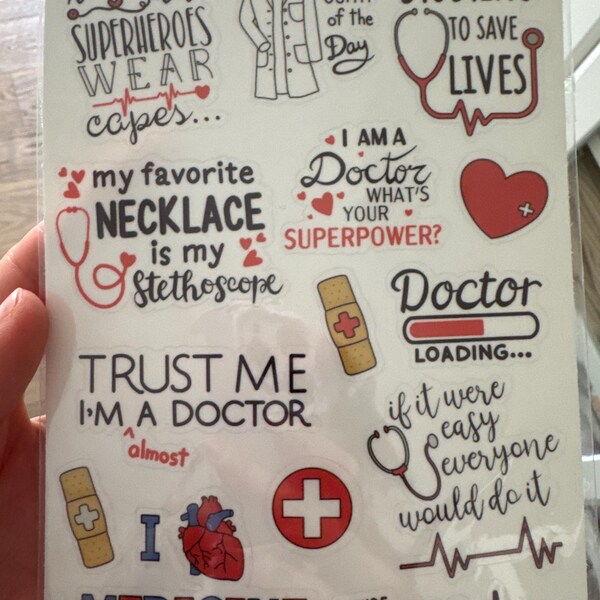 SUPERHEROES
WEAR
capes...
of the
Day
TO SAVE
LIVES
my favorite
NECKLACE
is my
Stethoscope
I AM A
Doctor
WHAT'S
YOUR
SUPERPOWER?
Doctor
LOADING...
TRUST ME
I'M A DOCTOR
almost
if it were
easy
everyone
would do it
I